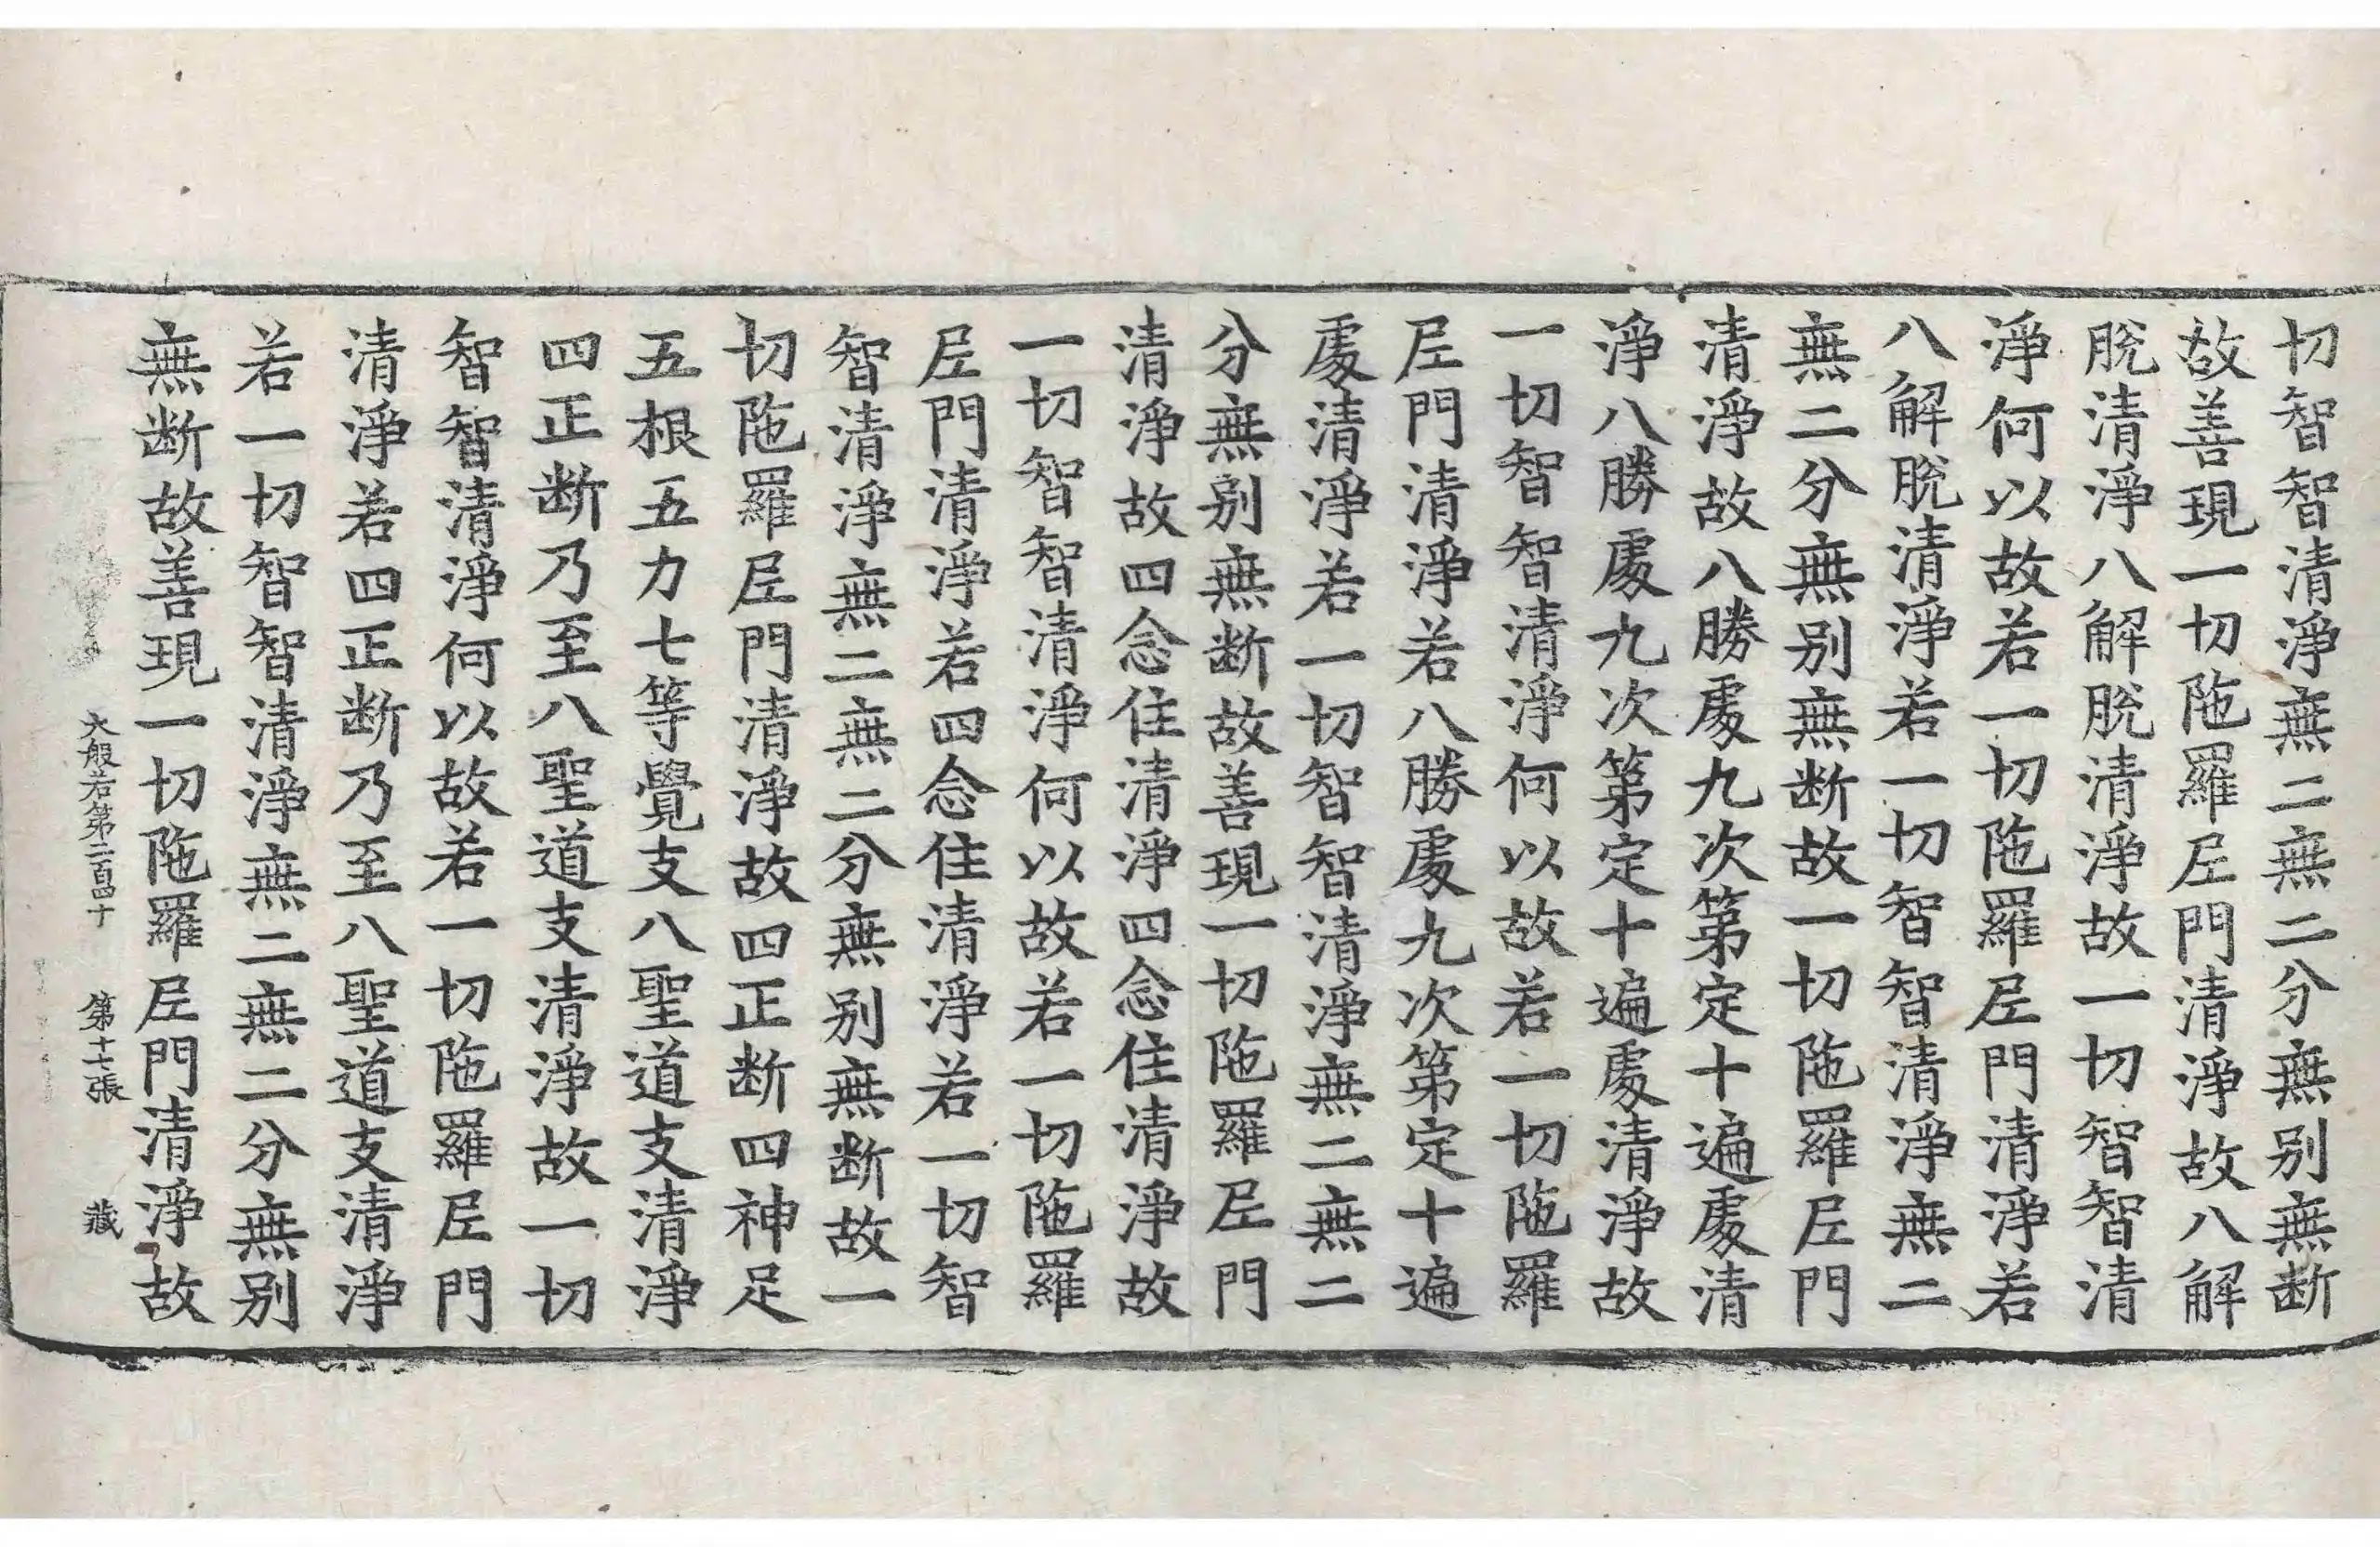 切智智清淨無二無二分無别無断
故善現一切陁羅尼門清淨故八解
脫清淨八解脫清淨故一切智智清
淨何以故若一切陁羅尼門清淨若
八解脫清淨若一切智智清淨無二
無二分無别無断故一切陁羅尼門
清淨故八勝處九次第定十遍處清
淨八勝處九次第定十遍處清淨故
一切智智清淨何以故若一切陁羅
尼門清淨若八勝處九次第定十遍
處清淨若一切智智清淨無二無二
分無别無断故善現一切陁羅尼門
清淨故四念住清淨四念住清淨故
一切智智清淨何以故若一切陁羅
尼門清淨若四念住清淨若一切智
智清淨無二無二分無别無断故一
切陁羅尼門清淨故四正断四神足
五根五力七等覺支八聖道支清淨
四正断乃至八聖道支清淨故一切
智智清淨何以故若一切陁羅尼門
清淨若四正断乃至八聖道支清淨
若一切智智清淨無二無二分無别
無断故善現一切陁羅尼門清淨故
大般若第二百四十 第十七張 藏